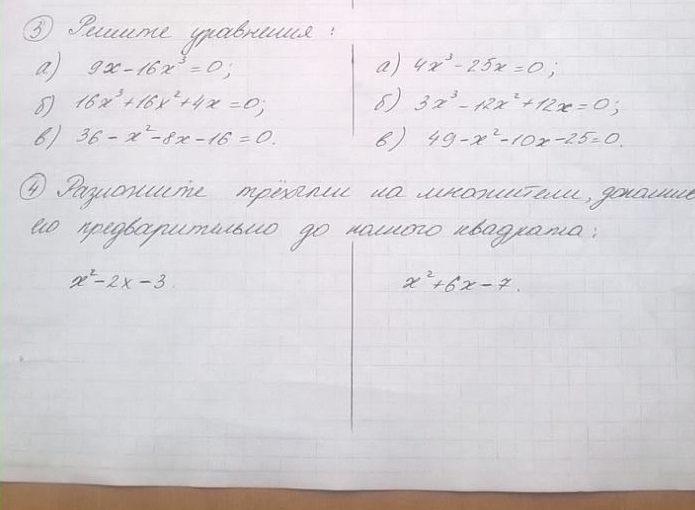 ③ Решите уравнения:
а) 9x-16x³=0;
б) 16x³+16x²+4x=0;
в) 36-x²-8x-16=0.
а) 4x³-25x=0;
б) 3x³-12x²+12x=0;
в) 49-x²-10x-25=0.
④ Разложите трёхчлен на множители, дополнив
его предварительно до полного квадрата:
x²-2x-3.
x²+6x-7.